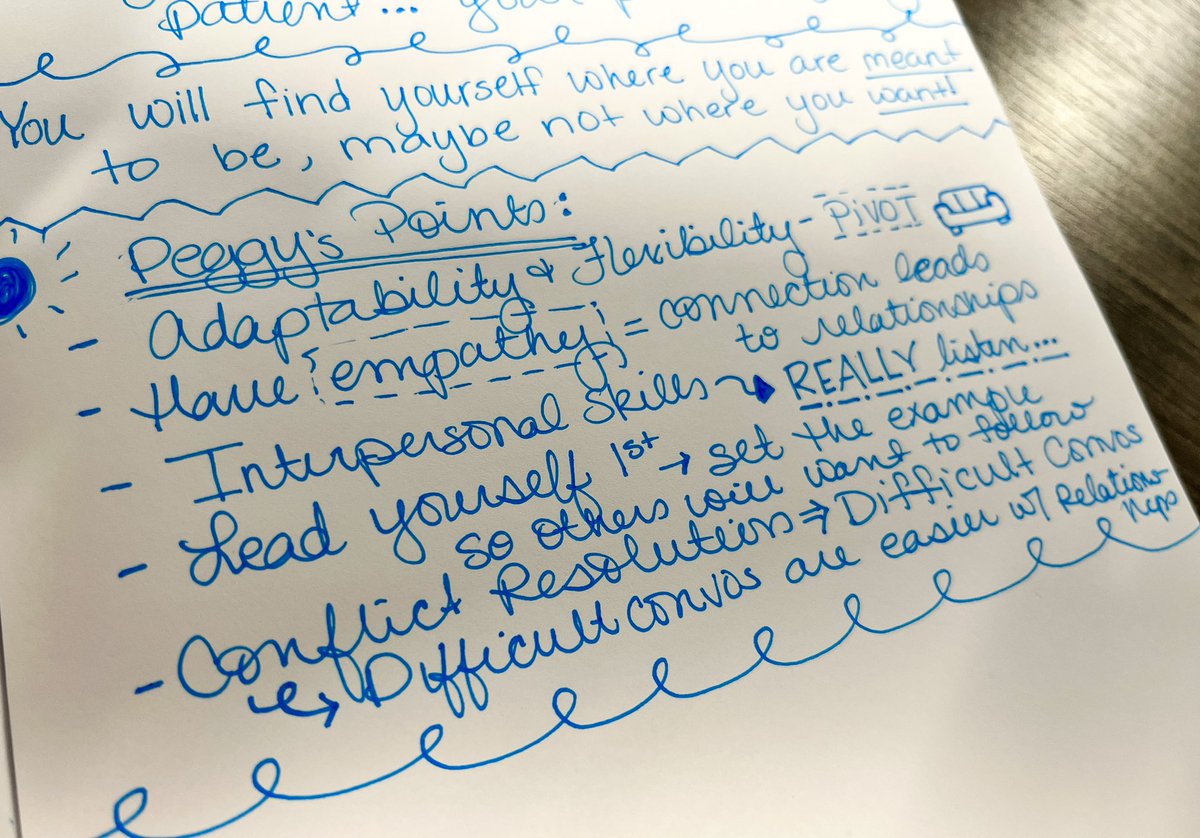 patient...
You will find yourself where you are meant
to be, maybe not where you want!
Peggy's Points:
- Adaptability & Flexibility - PIVOT
- Have empathy = connection leads
to relationships
- Interpersonal Skills → REALLY listen...
- Lead yourself 1st → set the example
so others will want to follow
- Conflict Resolution ⇒ Difficult Convos
↳ Difficult convos are easier w/ Relation-
hips